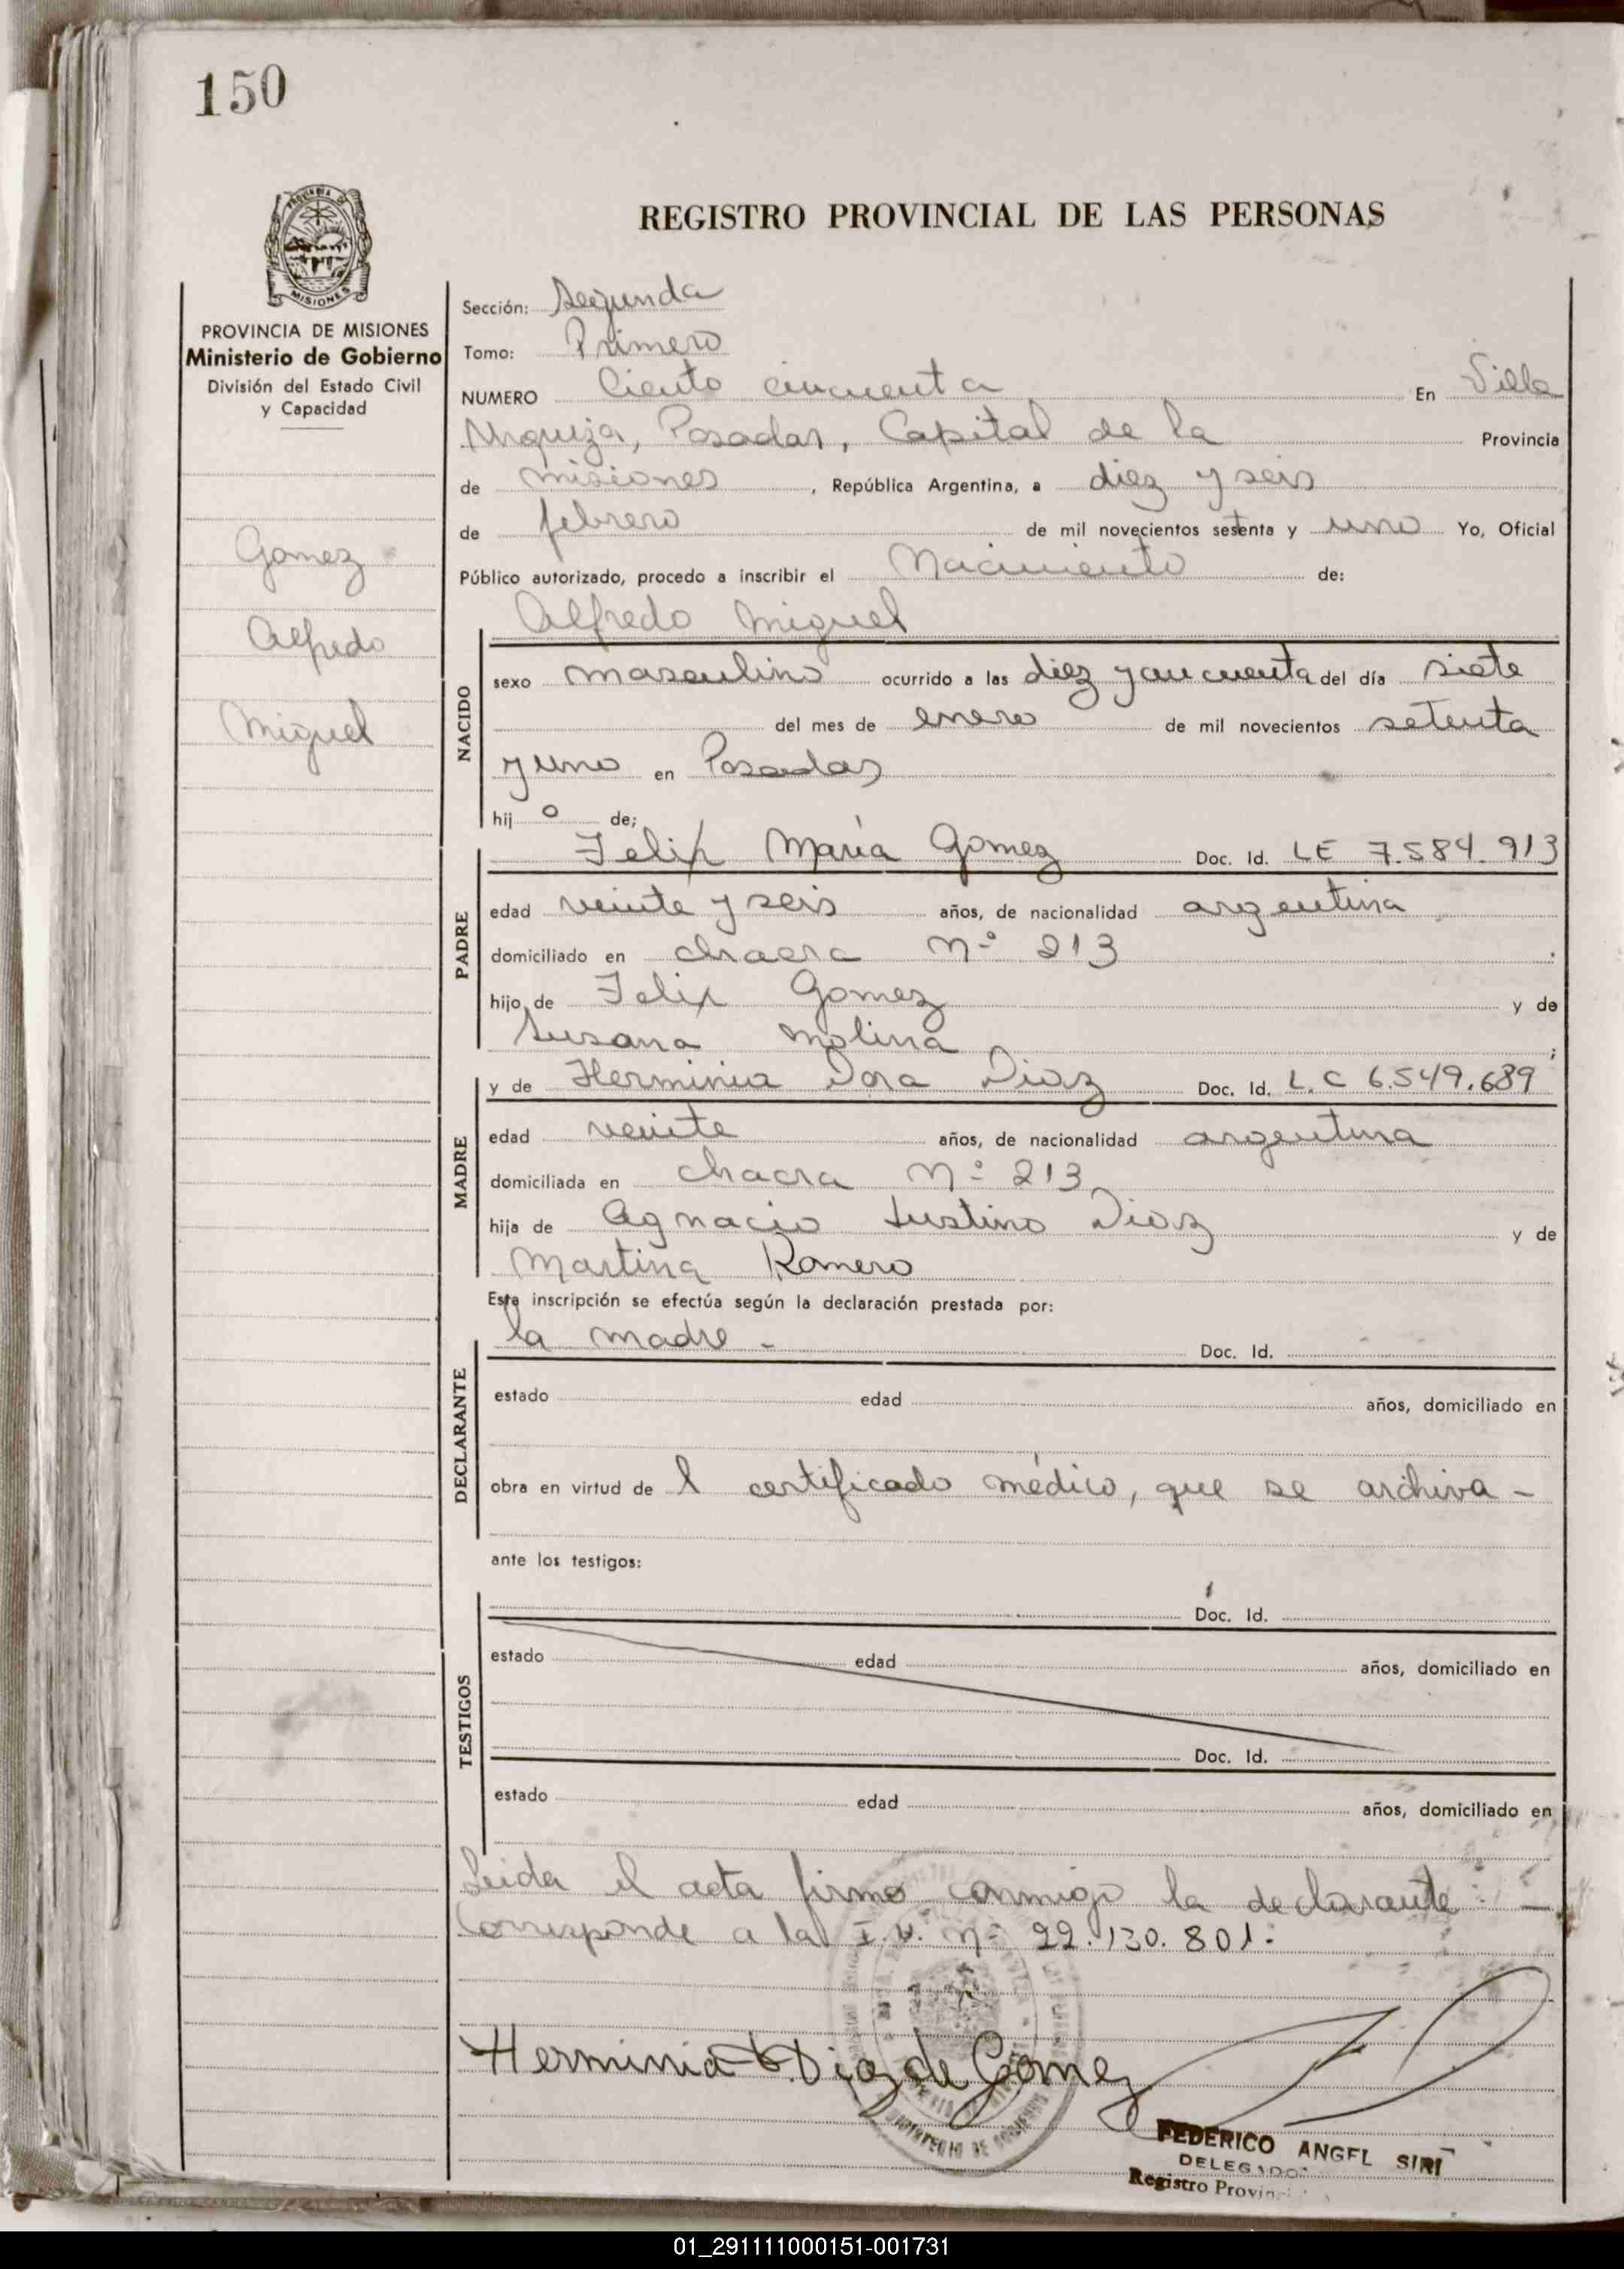 150
PROVINCIA DE MISIONES
Ministerio de Gobierno
División del Estado Civil
y Capacidad
Gomez
Alfredo
Miguel
REGISTRO PROVINCIAL DE LAS PERSONAS
Sección: Segunda
Tomo: Primero
NUMERO Ciento cincuenta En Villa
Urquiza, Posadas, Capital de la Provincia
de misiones, República Argentina, a diez y seis
de febrero de mil novecientos setenta y uno Yo, Oficial
Público autorizado, procedo a inscribir el Nacimiento de:
Alfredo Miguel
NACIDO
sexo masculino ocurrido a las diez y cincuenta del día siete
del mes de enero de mil novecientos setenta
y uno en Posadas
hij o de;
Felix María Gomez Doc. Id. LE 7.584.913
PADRE
edad veinte y seis años, de nacionalidad argentina
domiciliado en chacra Nº 213
hijo de Felix Gomez y de
Susana Molina;
y de Herminia Dora Diaz Doc. Id. L.C 6.549.689
MADRE
edad veinte años, de nacionalidad argentina
domiciliada en chacra Nº 213
hija de Agnacio Justino Diaz y de
Martina Romero
Esta inscripción se efectúa según la declaración prestada por:
la madre - Doc. Id.
DECLARANTE
estado edad años, domiciliado en
obra en virtud de l certificado médico, que se archiva -
ante los testigos:
Doc. Id.
TESTIGOS
estado edad años, domiciliado en
Doc. Id.
estado edad años, domiciliado en
Leida el acta firma conmigo la declarante: -
Corresponde a la Nº 22.130.801.-
Herminia D. Diaz de Gomez
FEDERICO ANGEL SIRI
DELEGADO
Registro Provin
01_291111000151-001731